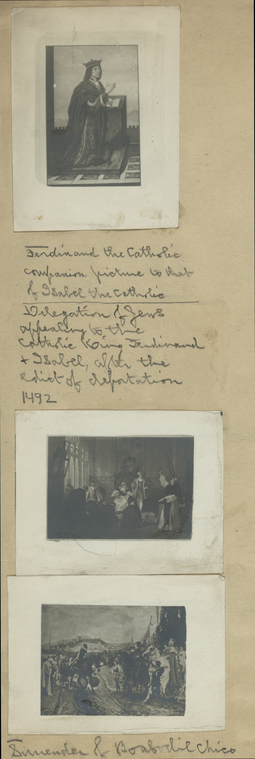 Ferdinand the Catholic
companion picture to that
of Isabel the Catholic
Delegation of Jews
appealing to the
Catholic King Ferdinand
+ Isabel, after the
edict of deportation
1492
Surrender of Boabdil Chico